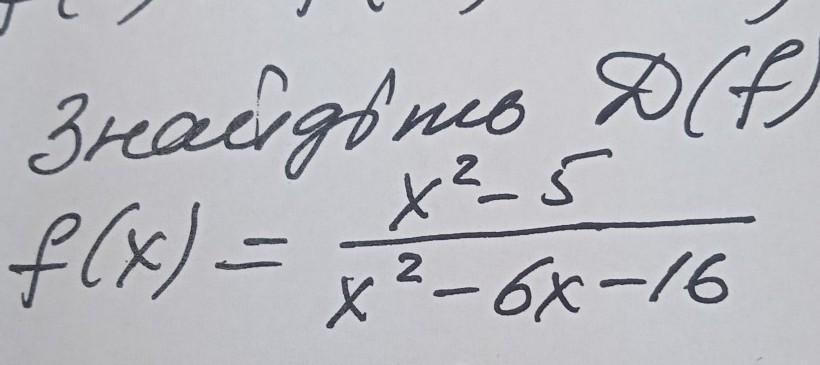 Знайдіть D(f)
f(x) = \frac{x^2 - 5}{x^2 - 6x - 16}